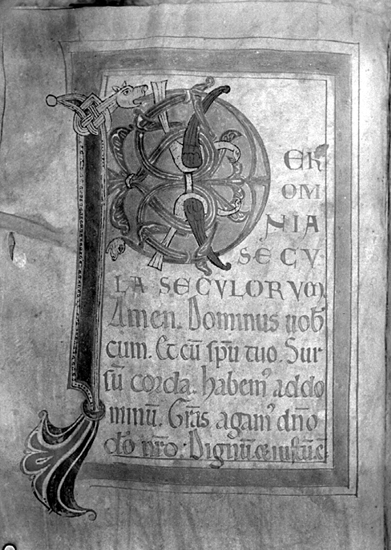 PER
OMNIA
SECU
LA SECULORVM
Amen. Dominus uob
cum. Et cū spū tuo. Sur
sū corda. habem' ad do
minū. Gr̄as agam' dn̄o
dō nr̄o. Dignū &